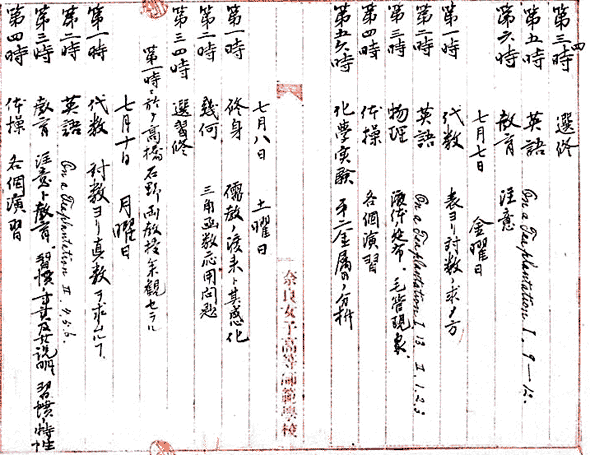 第三四時　選修
第五時　英語　On a Tea plantation I. 9—15.
第六時　教育　注意
七月七日　金曜日
第一時　代数　表ヨリ対数ヲ求ムル方
第二時　英語　On a Tea plantation I. 13 II. 1.2.3
第三時　物理　液体　毛管現象、
第四時　体操　各個演習
第五六時　化学実験　第二金属ノ分析
奈良女子高等師範学校
七月八日　土曜日
第一時　修身　儒教ノ渡来ト其感化
第二時　幾何　三角函数応用問題
第三四時　選習修
第一時ニ於テ高橋石野両教授来観セラル
七月十日　月曜日
第一時　代数　対数ヨリ真数ヲ求ムル丁
第二時　英語　On a Tea plantation II. 4.5.6.
第三時　教育　注意ト教育、習慣ノ意義及其説明　習慣ノ特性
第四時　体操　各個演習